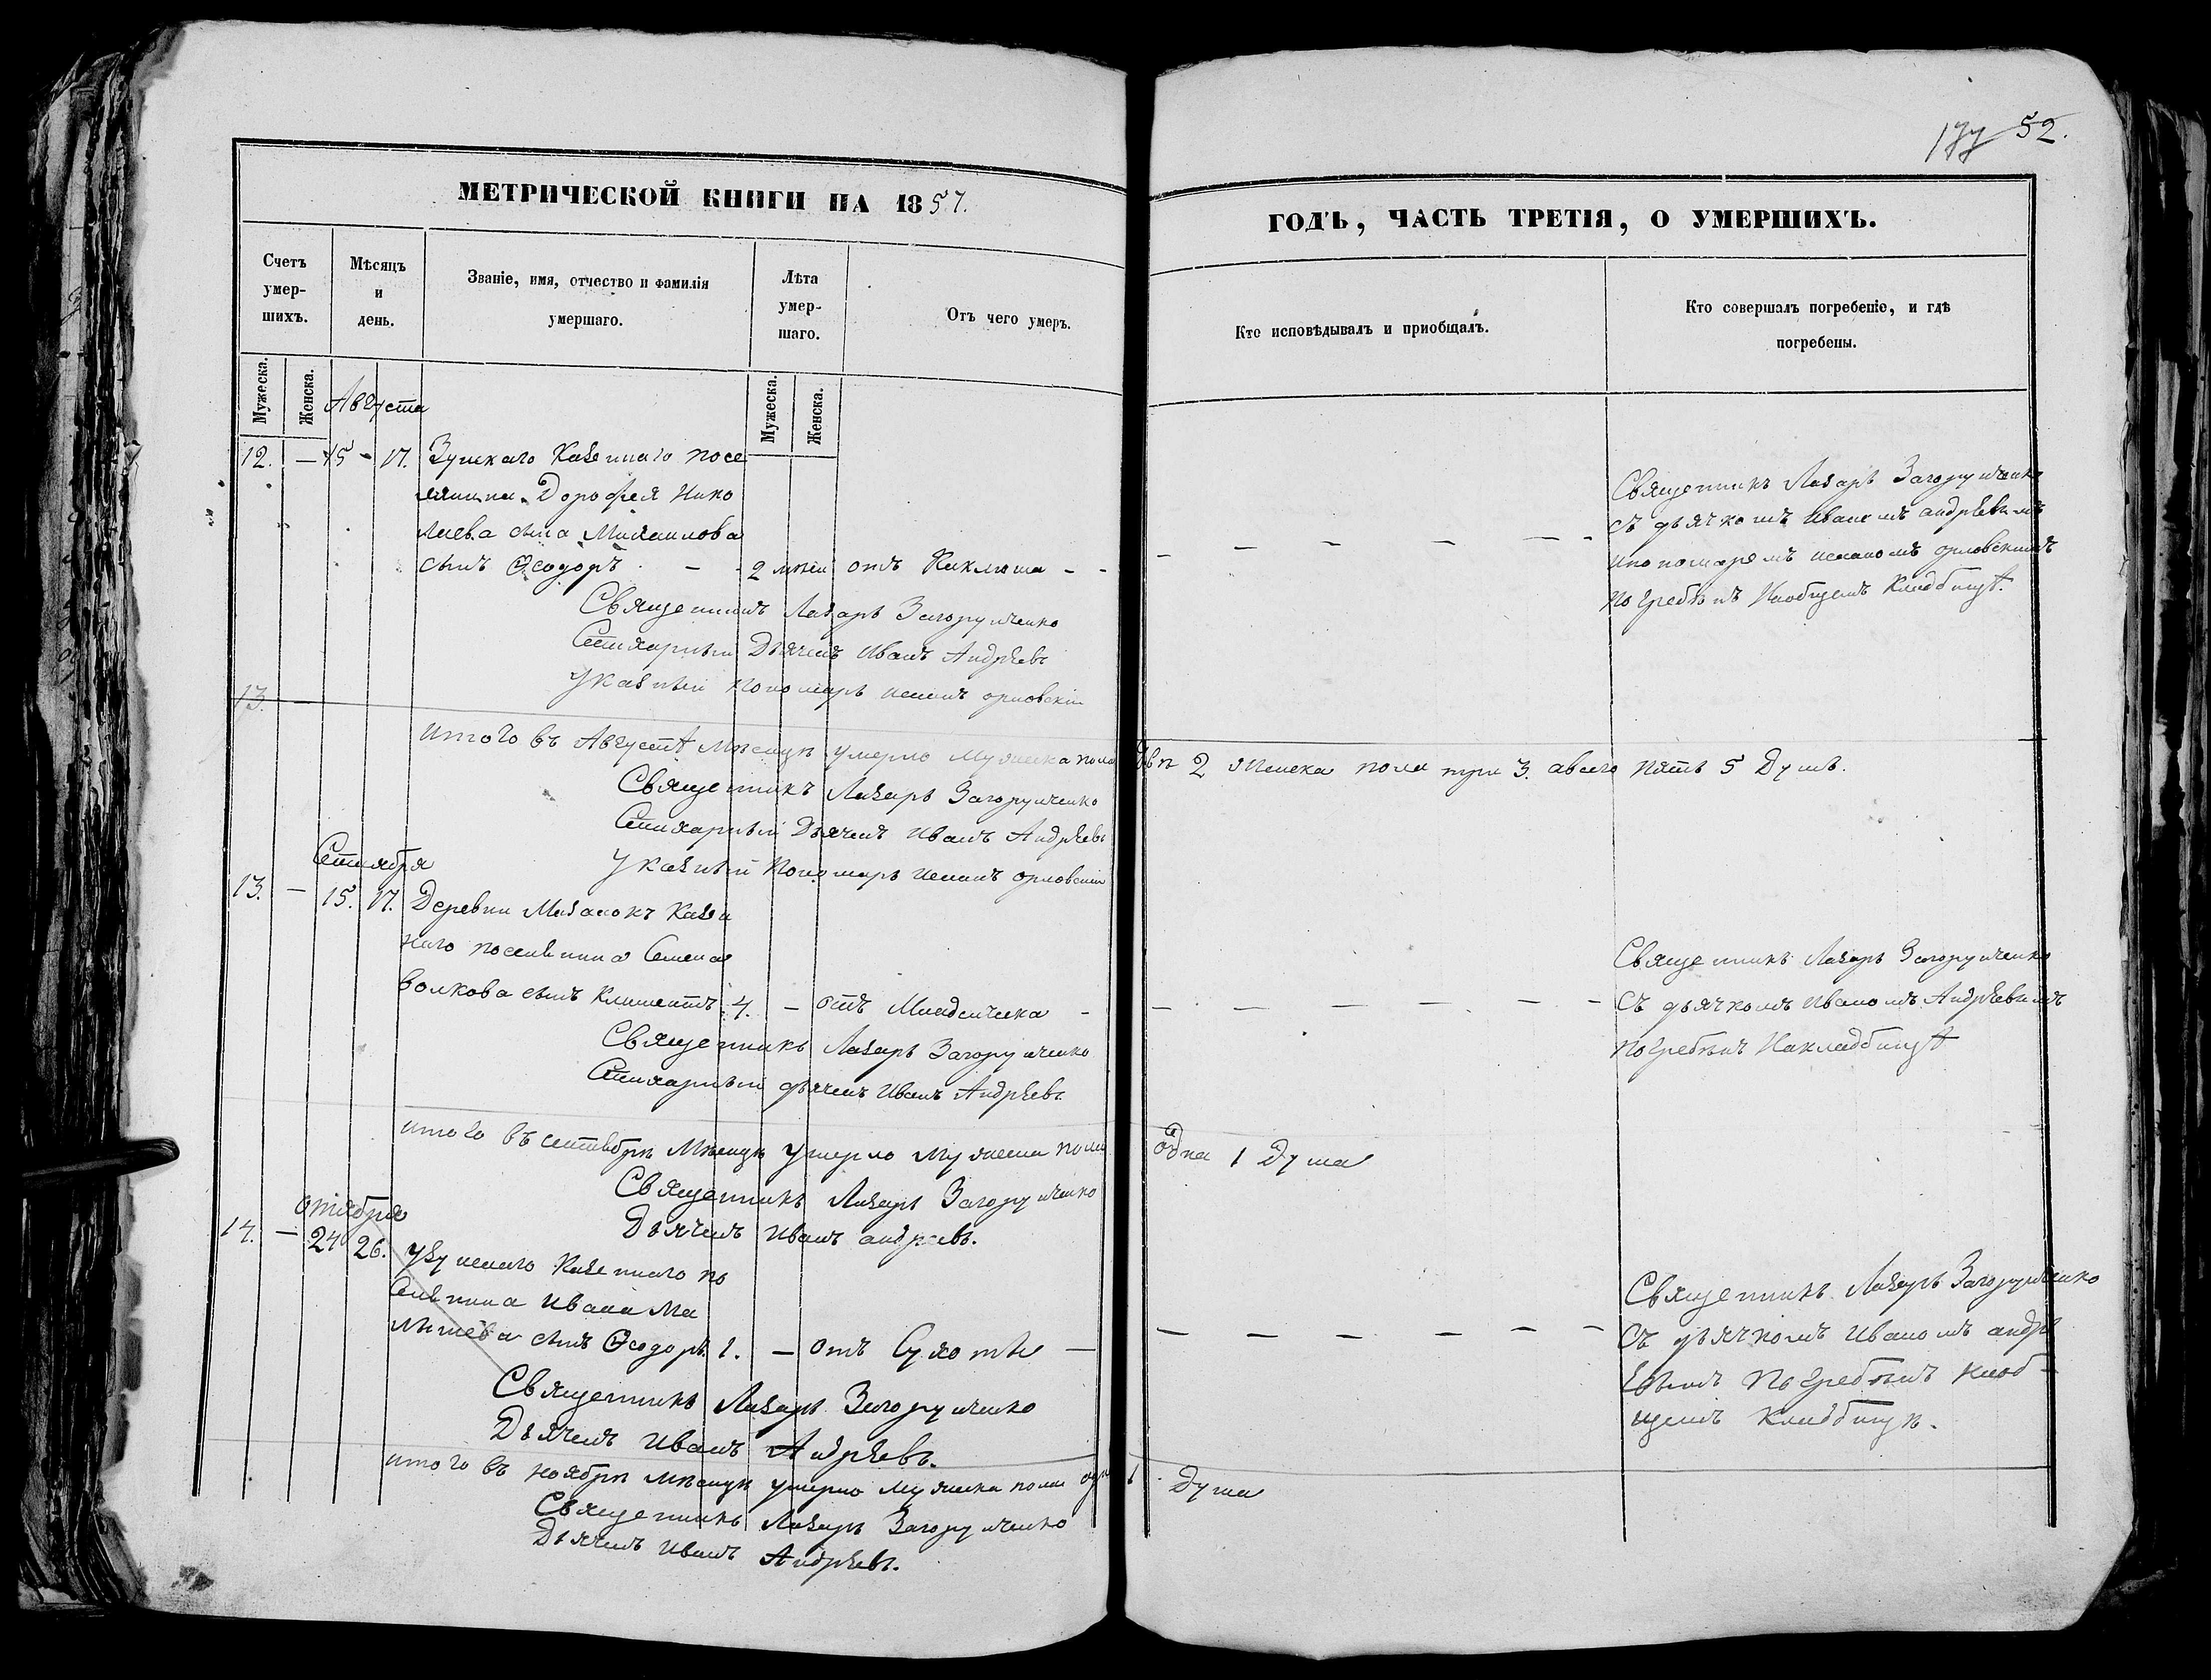 52.
МЕТРИЧЕСКОЙ КНИГИ НА 1857.
ГОДЪ, ЧАСТЬ ТРЕТІЯ, О УМЕРШИХЪ.
Счетъ умер-шихъ.
Мѣсяцъ и день.
Званіе, имя, отчество и фамилія умершаго.
Лѣта умер-шаго.
Отъ чего умеръ.
Кто исповѣдывалъ и пріобщалъ.
Кто совершалъ погребеніе, и гдѣ погребены.
Мужеска. Женска. Мужеска. Женска.
Августа
12. — 15 - 17. Казеннаго посе
лянина Дорофея Нико
лаева сына Михаилова
сынъ Ѳеодоръ - 2 отъ Каклюша - -
Священникъ Лазарь Загоруиченко
съ дьячкомъ Иваномъ андрѣевымъ
и пономаремъ орловскимъ
погребенъ наобщемъ кладбищѣ.
Священникъ Лазарь Загоруиченко
Стихарный Дьячекъ Иванъ Андрѣевъ
Указный пономарь орловскій
13. —
итого въ Августѣ мѣсяцѣ умерло мужеска пола двѣ 2 женска пола три 3. а всего пять 5 Душъ.
Священникъ Лазарь Загоруиченко
Стихарный Дьячекъ Иванъ Андрѣевъ
Указный Пономарь орловскій
Сентября
13. — 15. 17. Деревни Казен
наго поселянина Семена
волкова сынъ Климентъ 4. — отъ Младенческа -
Священникъ Лазарь Загоруиченко
съ дьячкомъ Иваномъ Андрѣевымъ
погребенъ накладбищѣ
Священникъ Лазарь Загоруиченко
Стихарный дьячекъ Иванъ Андрѣевъ
итого въ сентябрѣ Мѣсяцѣ умерло мужеска пола одна 1 Душа
Священникъ Лазарь Загоруиченко
Дьячекъ Иванъ андреевъ.
отября
14. — 24 26. Казеннаго по
селянина Ивана Ма
сынъ Ѳеодоръ 1. — отъ Сухоты —
Священникъ Лазарь Загоруиченко
съ дьячкомъ Иваномъ андрѣ
евымъ погребенъ наоб-
щемъ кладбищѣ.
Священникъ Лазарь Загоруиченко
Дьячекъ Иванъ Андрѣевъ.
итого въ ноябрѣ мѣсяцѣ умерло мужеска пола одна 1 душа
Священникъ Лазарь Загоруиченко
Дьячекъ Иванъ Андрѣевъ.